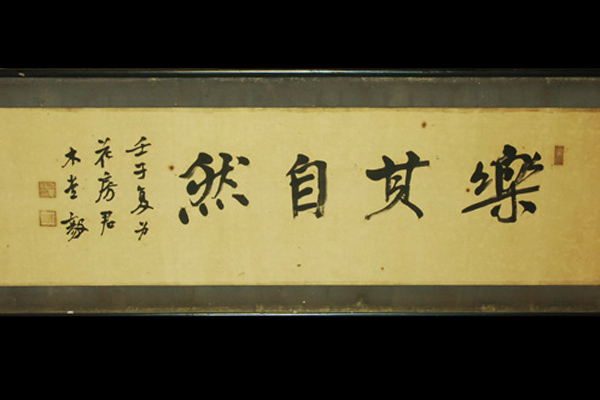 樂其自然
壬子夏為
花房君
木堂毅